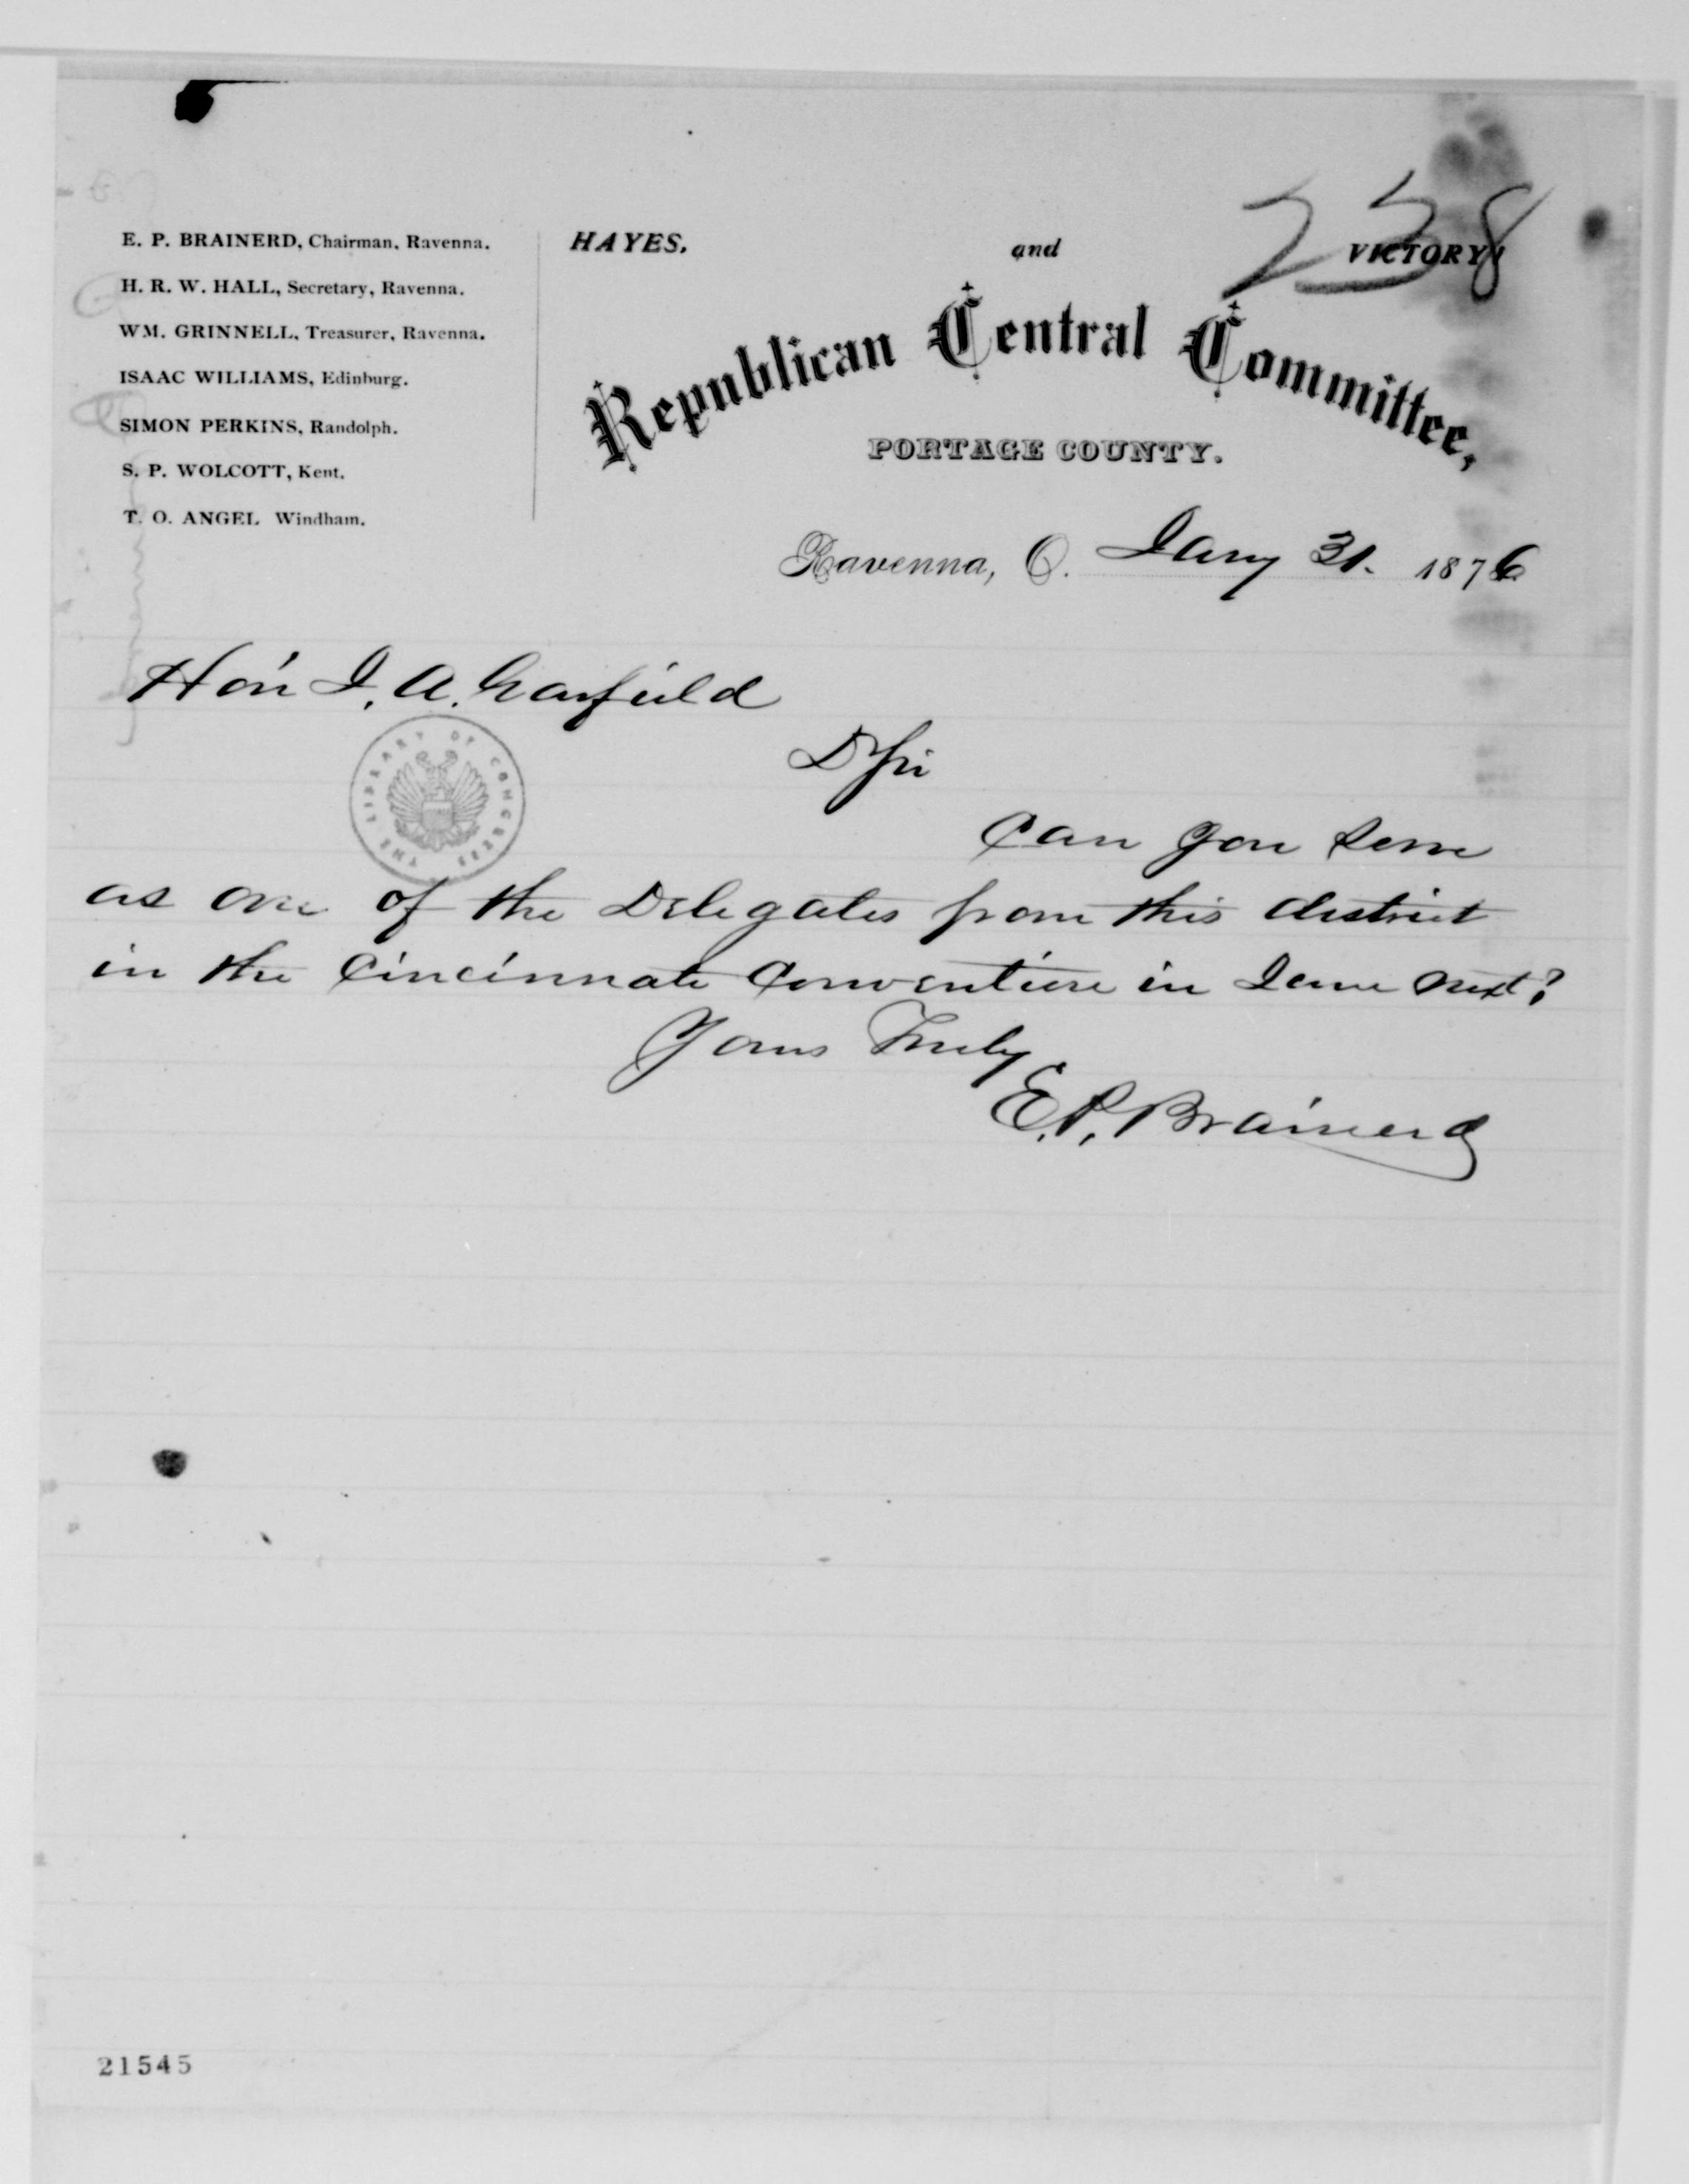 238
E. P. BRAINERD, Chairman, Ravenna.
H. R. W. HALL, Secretary, Ravenna.
WM. GRINNELL, Treasurer, Ravenna.
ISAAC WILLIAMS, Edinburg.
SIMON PERKINS, Randolph.
S. P. WOLCOTT, Kent.
T. O. ANGEL Windham.
HAYES, and VICTORY!
Republican Central Committee,
PORTAGE COUNTY.
Ravenna, O. Jany 31. 1876
Hon J. A. Garfield
D Sir
Can you serve
as one of the Delegates from this district
in the Cincinnati Convention in June next?
Yours Truly
E. P. Brainerd
THE LIBRARY OF CONGRESS
21545